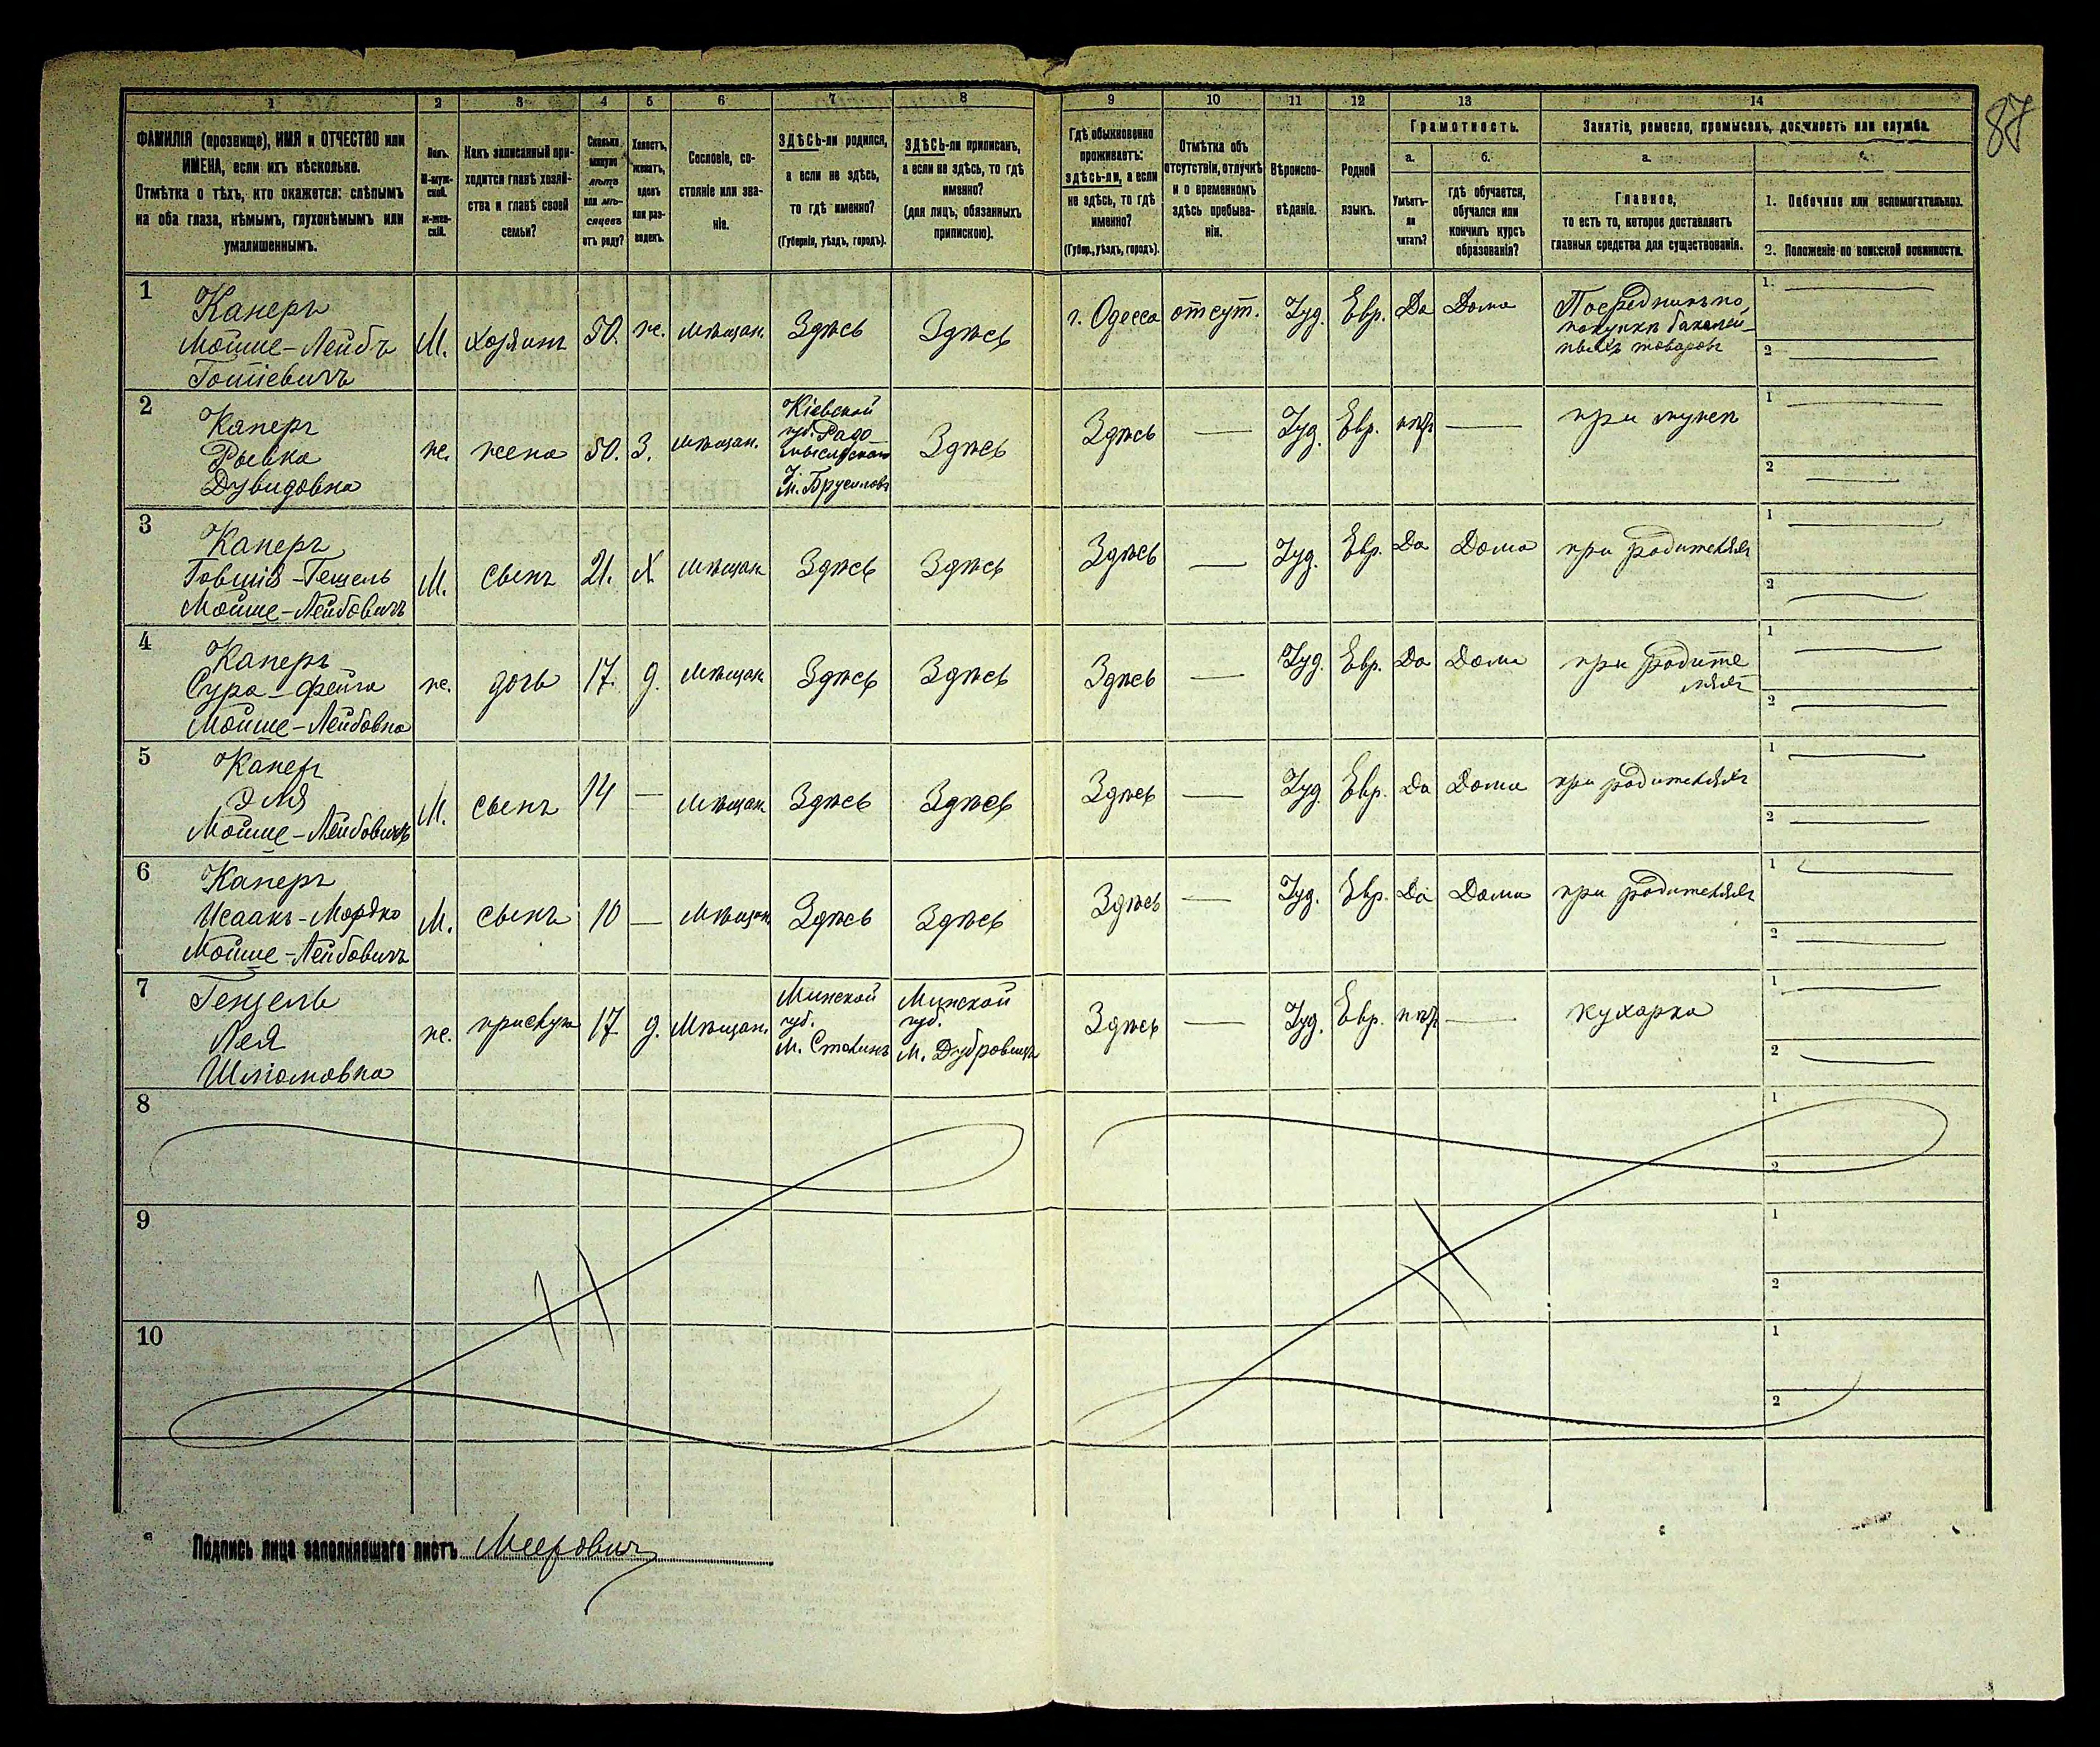 87
1 2 3 4 5 6 7 8 9 10 11 12 13 14
ФАМИЛІЯ (прозвище), ИМЯ и ОТЧЕСТВО или
ИМЕНА, если ихъ нѣсколько.
Отмѣтка о тѣхъ, кто окажется: слѣпымъ
на оба глаза, нѣмымъ, глухонѣмымъ или
умалишеннымъ.
Полъ.
М-муж-
ской.
ж-жен-
скій.
Какъ записанный при-
ходится главѣ хозяй-
ства и главѣ своей
семьи?
Сколько
минуло
лѣтъ
или мѣ-
сяцевъ
отъ роду?
Холостъ,
женатъ,
вдовъ
или раз-
веденъ.
Сословіе, со-
стояніе или зва-
ніе.
ЗДѢСЬ-ли родился,
а если не здѣсь,
то гдѣ именно?
(Губернія, уѣздъ, городъ).
ЗДѢСЬ-ли приписанъ,
а если не здѣсь, то гдѣ
именно?
(для лицъ, обязанныхъ
припискою).
Гдѣ обыкновенно
проживаетъ:
здѣсь-ли, а если
не здѣсь, то гдѣ
именно?
(Губер., уѣздъ, городъ).
Отмѣтка объ
отсутствіи, отлучкѣ
и о временномъ
здѣсь пребыва-
ніи.
Вѣроиспо-
вѣданіе.
Родной
языкъ.
Грамотность.
а.
Умѣетъ-
ли
читать?
б.
гдѣ обучается,
обучался или
кончилъ курсъ
образованія?
Занятіе, ремесло, промыселъ, должность или служба.
а.
Главное,
то есть то, которое доставляетъ
главныя средства для существованія.
1. Побочное или вспомогательное.
2. Положеніе по воинской повинности.
1
Каперъ
Мойше-Лейбъ
М. хозяинъ 50. ж. мѣщан. Здѣсь Здѣсь г. Одесса отсут. Іуд. Евр. Да Дома
Посредникъ по
покупкѣ бакалей-
ныхъ товаровъ
1.
2
2
Каперъ
Рывка
Дувидовна
ж. жена 50. З. мѣщан.
Кіевской
губ. Радо-
мысльскаго
у. м. Брусиловъ
Здѣсь Здѣсь — Іуд. Евр. нѣт — при мужѣ
1
2
3
Каперъ
Мойше-Лейбовичъ
М. сынъ 21. Х. мѣщан Здѣсь Здѣсь Здѣсь — Іуд. Евр. Да Дома при родителяхъ
1
2
4
Каперъ
Сура-Фейга
Мойше-Лейбовна
ж. дочь 17. д. мѣщан Здѣсь Здѣсь Здѣсь — Іуд. Евр. Да Дома при родите
ляхъ
1
2
5
Каперъ
Эля
Мойше-Лейбовичъ
М. сынъ 14 — мѣщан Здѣсь Здѣсь Здѣсь — Іуд. Евр. Да Дома при родителяхъ
1
2
6
Каперъ
Исаакъ-Мордко
Мойше-Лейбовичъ
М. сынъ 10 — мѣщан Здѣсь Здѣсь Здѣсь — Іуд. Евр. Да Дома при родителяхъ
1
2
7
Гензель
Лея
Шліомовна
ж. прислуга 17 д. Мѣщан.
Минской
губ.
м. Столинъ
Минской
губ.
м. Дубровицы
Здѣсь — Іуд. Евр. нѣт — кухарка
1
2
8
1
2
9
1
2
10
1
2
Подпись лица заполнявшаго листъ Меерович